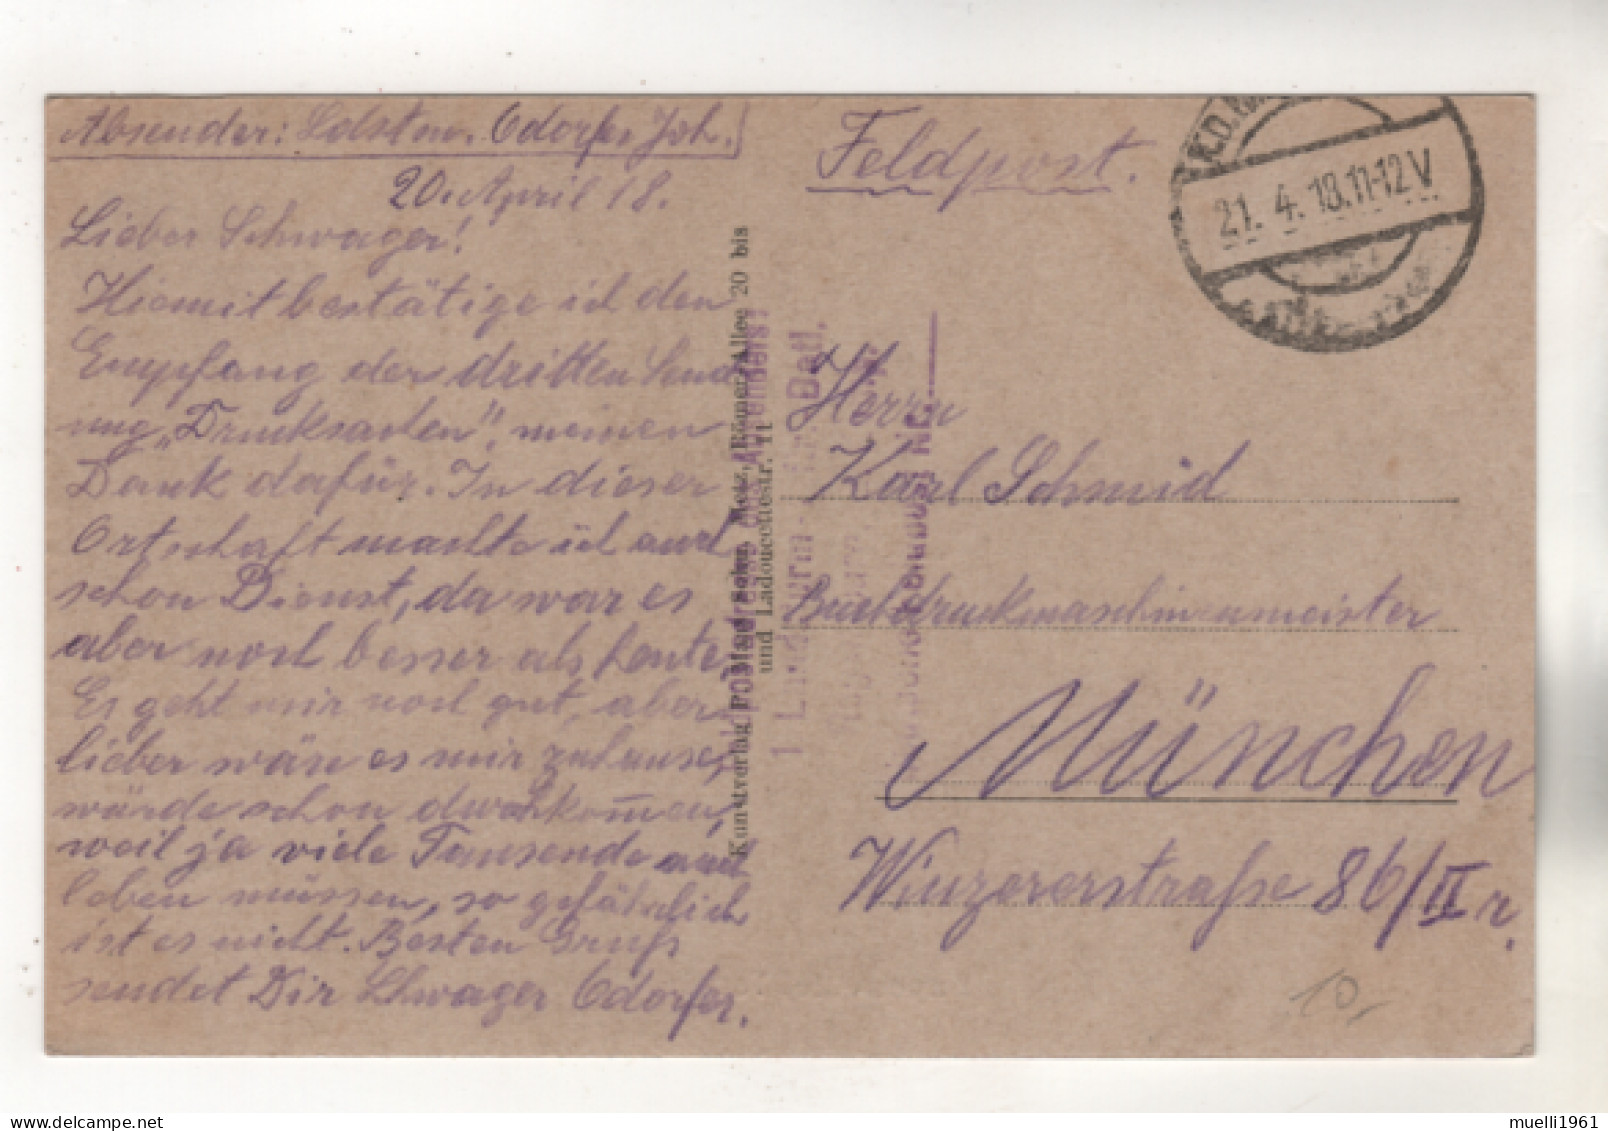 Absender: Ldstm. Odorfer Joh.
20. April 18.
Lieber Schwager!
Hiermit bestätige ich den
Empfang der dritten Send
ung „Drucksachen", meinen
Dank dafür. In dieser
Ortschaft machte ich auch
schon Dienst, da war es
aber noch besser als heute.
Es geht mir noch gut, aber
lieber wäre es mir zuhause,
würde schon durchkom̅en,
weil ja viele Tausende auch
leben müssen, so gefährlich
ist es nicht. Besten Gruß
sendet Dir Schwager Odorfer.
Kunstverlag Metz, Römer-Allee 20 bis
und Ladoucettestr. 11
Feldpost.
K.D.
21. 4. 18. 11-12 V
Herrn
Karl Schmid
Buchdruckmaschinenmeister
München
Winzererstraße 86/II r.
10.-
muelli1961
delcampe.net